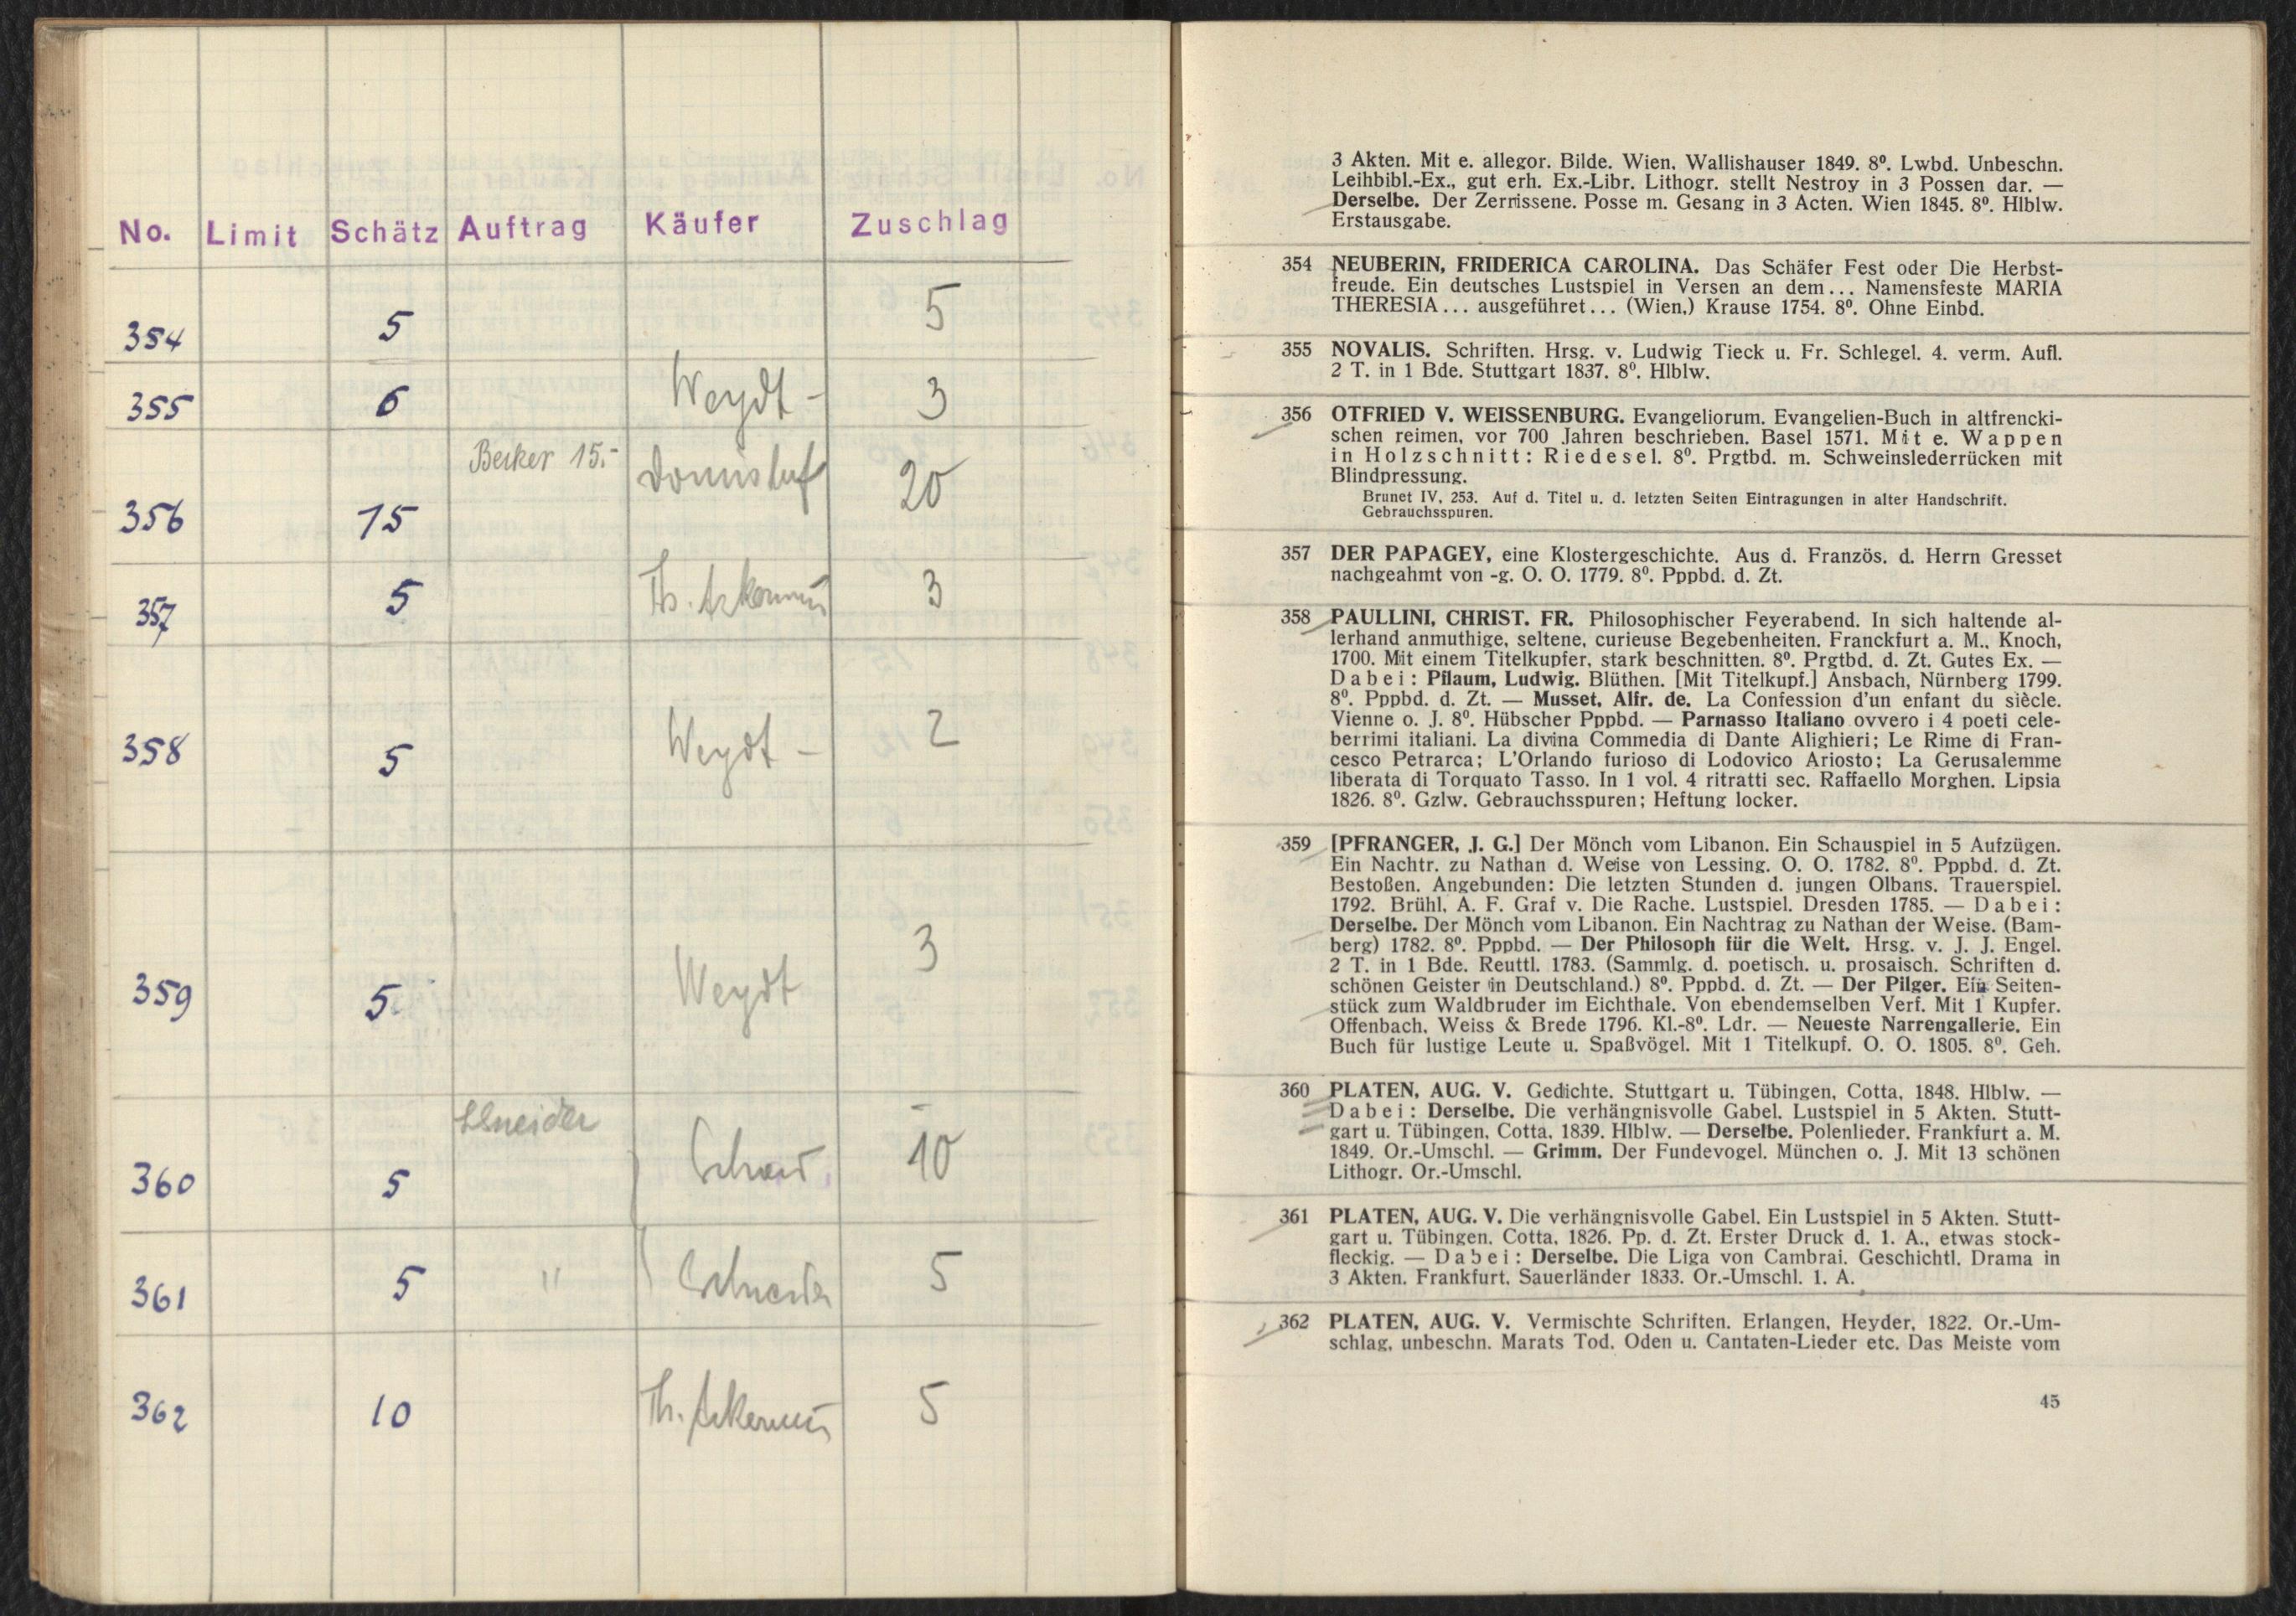 No. Limit Schätz Auftrag Käufer Zuschlag
354 5 5
355 6 Weydt - 3
356 15 Becker 15.- 20
357 5 Th. Ackermann 3
358 5 Weydt - 2
359 5 Weydt 3
360 5 Schneider 10
361 5 " Schneider 5
362 10 Th. Ackermann 5
3 Akten. Mit e. allegor. Bilde. Wien, Wallishauser 1849. 8⁰. Lwbd. Unbeschn.
Leihbibl.-Ex., gut erh. Ex.-Libr. Lithogr. stellt Nestroy in 3 Possen dar. —
Derselbe. Der Zerrissene. Posse m. Gesang in 3 Acten. Wien 1845. 8⁰. Hlblw.
Erstausgabe.
354 NEUBERIN, FRIDERICA CAROLINA. Das Schäfer Fest oder Die Herbst-
freude. Ein deutsches Lustspiel in Versen an dem... Namensfeste MARIA
THERESIA... ausgeführet... (Wien,) Krause 1754. 8⁰. Ohne Einbd.
355 NOVALIS. Schriften. Hrsg. v. Ludwig Tieck u. Fr. Schlegel. 4. verm. Aufl.
2 T. in 1 Bde. Stuttgart 1837. 8⁰. Hlblw.
356 OTFRIED V. WEISSENBURG. Evangeliorum. Evangelien-Buch in altfrencki-
schen reimen, vor 700 Jahren beschrieben. Basel 1571. Mit e. Wappen
in Holzschnitt: Riedesel. 8⁰. Prgtbd. m. Schweinslederrücken mit
Blindpressung.
Brunet IV, 253. Auf d. Titel u. d. letzten Seiten Eintragungen in alter Handschrift.
Gebrauchsspuren.
357 DER PAPAGEY, eine Klostergeschichte. Aus d. Französ. d. Herrn Gresset
nachgeahmt von -g. O. O. 1779. 8⁰. Pppbd. d. Zt.
358 PAULLINI, CHRIST. FR. Philosophischer Feyerabend. In sich haltende al-
lerhand anmuthige, seltene, curieuse Begebenheiten. Franckfurt a. M., Knoch,
1700. Mit einem Titelkupfer, stark beschnitten. 8⁰. Prgtbd. d. Zt. Gutes Ex. —
Dabei: Pflaum, Ludwig. Blüthen. [Mit Titelkupf.] Ansbach, Nürnberg 1799.
8⁰. Pppbd. d. Zt. — Musset, Alfr. de. La Confession d'un enfant du siècle.
Vienne o. J. 8⁰. Hübscher Pppbd. — Parnasso Italiano ovvero i 4 poeti cele-
berrimi italiani. La divina Commedia di Dante Alighieri; Le Rime di Fran-
cesco Petrarca; L'Orlando furioso di Lodovico Ariosto; La Gerusalemme
liberata di Torquato Tasso. In 1 vol. 4 ritratti sec. Raffaello Morghen. Lipsia
1826. 8⁰. Gzlw. Gebrauchsspuren; Heftung locker.
359 [PFRANGER, J. G.] Der Mönch vom Libanon. Ein Schauspiel in 5 Aufzügen.
Ein Nachtr. zu Nathan d. Weise von Lessing. O. O. 1782. 8⁰. Pppbd. d. Zt.
Bestoßen. Angebunden: Die letzten Stunden d. jungen Olbans. Trauerspiel.
1792. Brühl, A. F. Graf v. Die Rache. Lustspiel. Dresden 1785. — Dabei:
Derselbe. Der Mönch vom Libanon. Ein Nachtrag zu Nathan der Weise. (Bam-
berg) 1782. 8⁰. Pppbd. — Der Philosoph für die Welt. Hrsg. v. J. J. Engel.
2 T. in 1 Bde. Reuttl. 1783. (Sammlg. d. poetisch. u. prosaisch. Schriften d.
schönen Geister in Deutschland.) 8⁰. Pppbd. d. Zt. — Der Pilger. Ein Seiten-
stück zum Waldbruder im Eichthale. Von ebendemselben Verf. Mit 1 Kupfer.
Offenbach, Weiss & Brede 1796. Kl.-8⁰. Ldr. — Neueste Narrengallerie. Ein
Buch für lustige Leute u. Spaßvögel. Mit 1 Titelkupf. O. O. 1805. 8⁰. Geh.
360 PLATEN, AUG. V. Gedichte. Stuttgart u. Tübingen, Cotta, 1848. Hlblw. —
Dabei: Derselbe. Die verhängnisvolle Gabel. Lustspiel in 5 Akten. Stutt-
gart u. Tübingen, Cotta, 1839. Hlblw. — Derselbe. Polenlieder. Frankfurt a. M.
1849. Or.-Umschl. — Grimm. Der Fundevogel. München o. J. Mit 13 schönen
Lithogr. Or.-Umschl.
361 PLATEN, AUG. V. Die verhängnisvolle Gabel. Ein Lustspiel in 5 Akten. Stutt-
gart u. Tübingen, Cotta, 1826. Pp. d. Zt. Erster Druck d. 1. A., etwas stock-
fleckig. — Dabei: Derselbe. Die Liga von Cambrai. Geschichtl. Drama in
3 Akten. Frankfurt, Sauerländer 1833. Or.-Umschl. 1. A.
362 PLATEN, AUG. V. Vermischte Schriften. Erlangen, Heyder, 1822. Or.-Um-
schlag, unbeschn. Marats Tod. Oden u. Cantaten-Lieder etc. Das Meiste vom
45